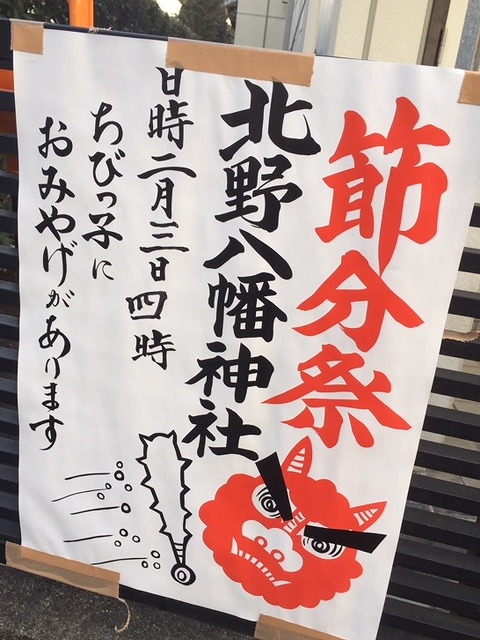 節分祭
北野八幡神社
日時二月三日四時
ちびっ子に
おみやげがあります